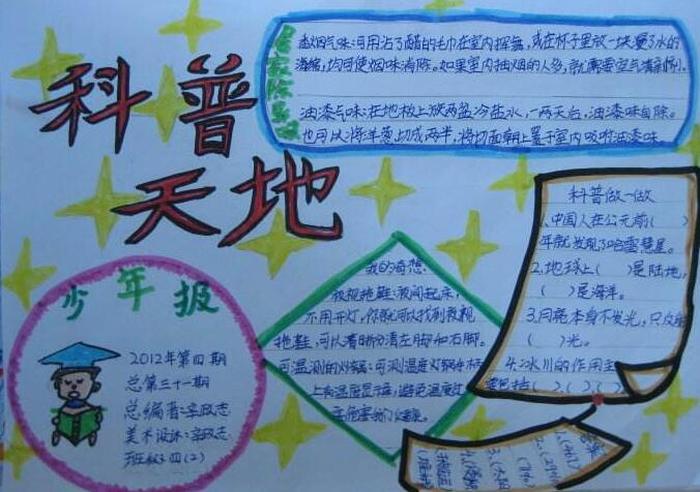 科普
天地
居家除异味
散烟气味:可用沾了醋的毛巾在室内挥舞,或在杯子里放一块浸了水的
海绵,均可使烟味消除。如果室内抽烟的人多,就需要空气清新剂。
油漆气味:在地板上放两盆冷盐水,一两天后,油漆味自除。
也可以将洋葱切成两半,将切面朝上置于室内吸附油漆味
科普做一做
1.中国人在公元前( )
年就发现了哈雷彗星。
2.地球上( )是陆地,
( )是海洋。
3.月亮本身不发光,只反射
( )光。
4.冰川的作用主
要包括( )、( )、( )
我的奇想:
夜视拖鞋:夜间起床,
不用开灯,你就可以找到夜视
拖鞋,可以看晰分清左脚和右脚。
可温测的火锅:可测温度火锅
上有温度显示,避免温度过
少年报
2012年第四期
总第三十一期
总编者:
美术设计:
班级:四(2)
答案